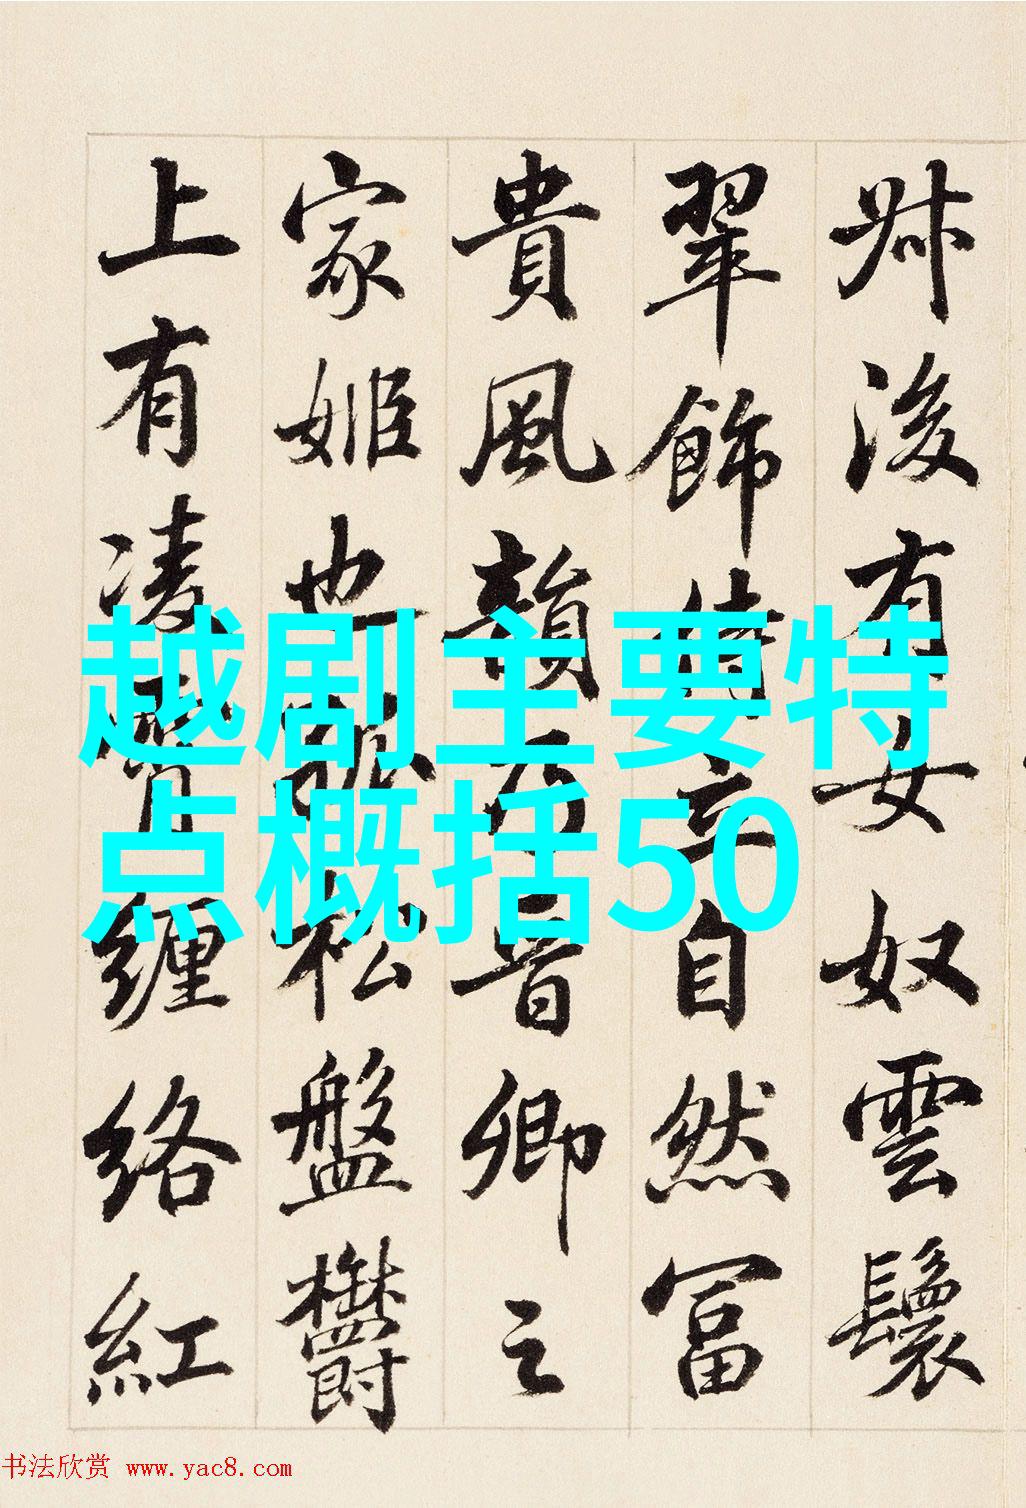 叔後有女奴雲鬟
翠飾侍立自然富
貴風韻乃晋卿之
家姬也孤松盤欝
上有凌霄纏絡紅
越剧主要特
点概括50
书法欣赏 www.yac8.com